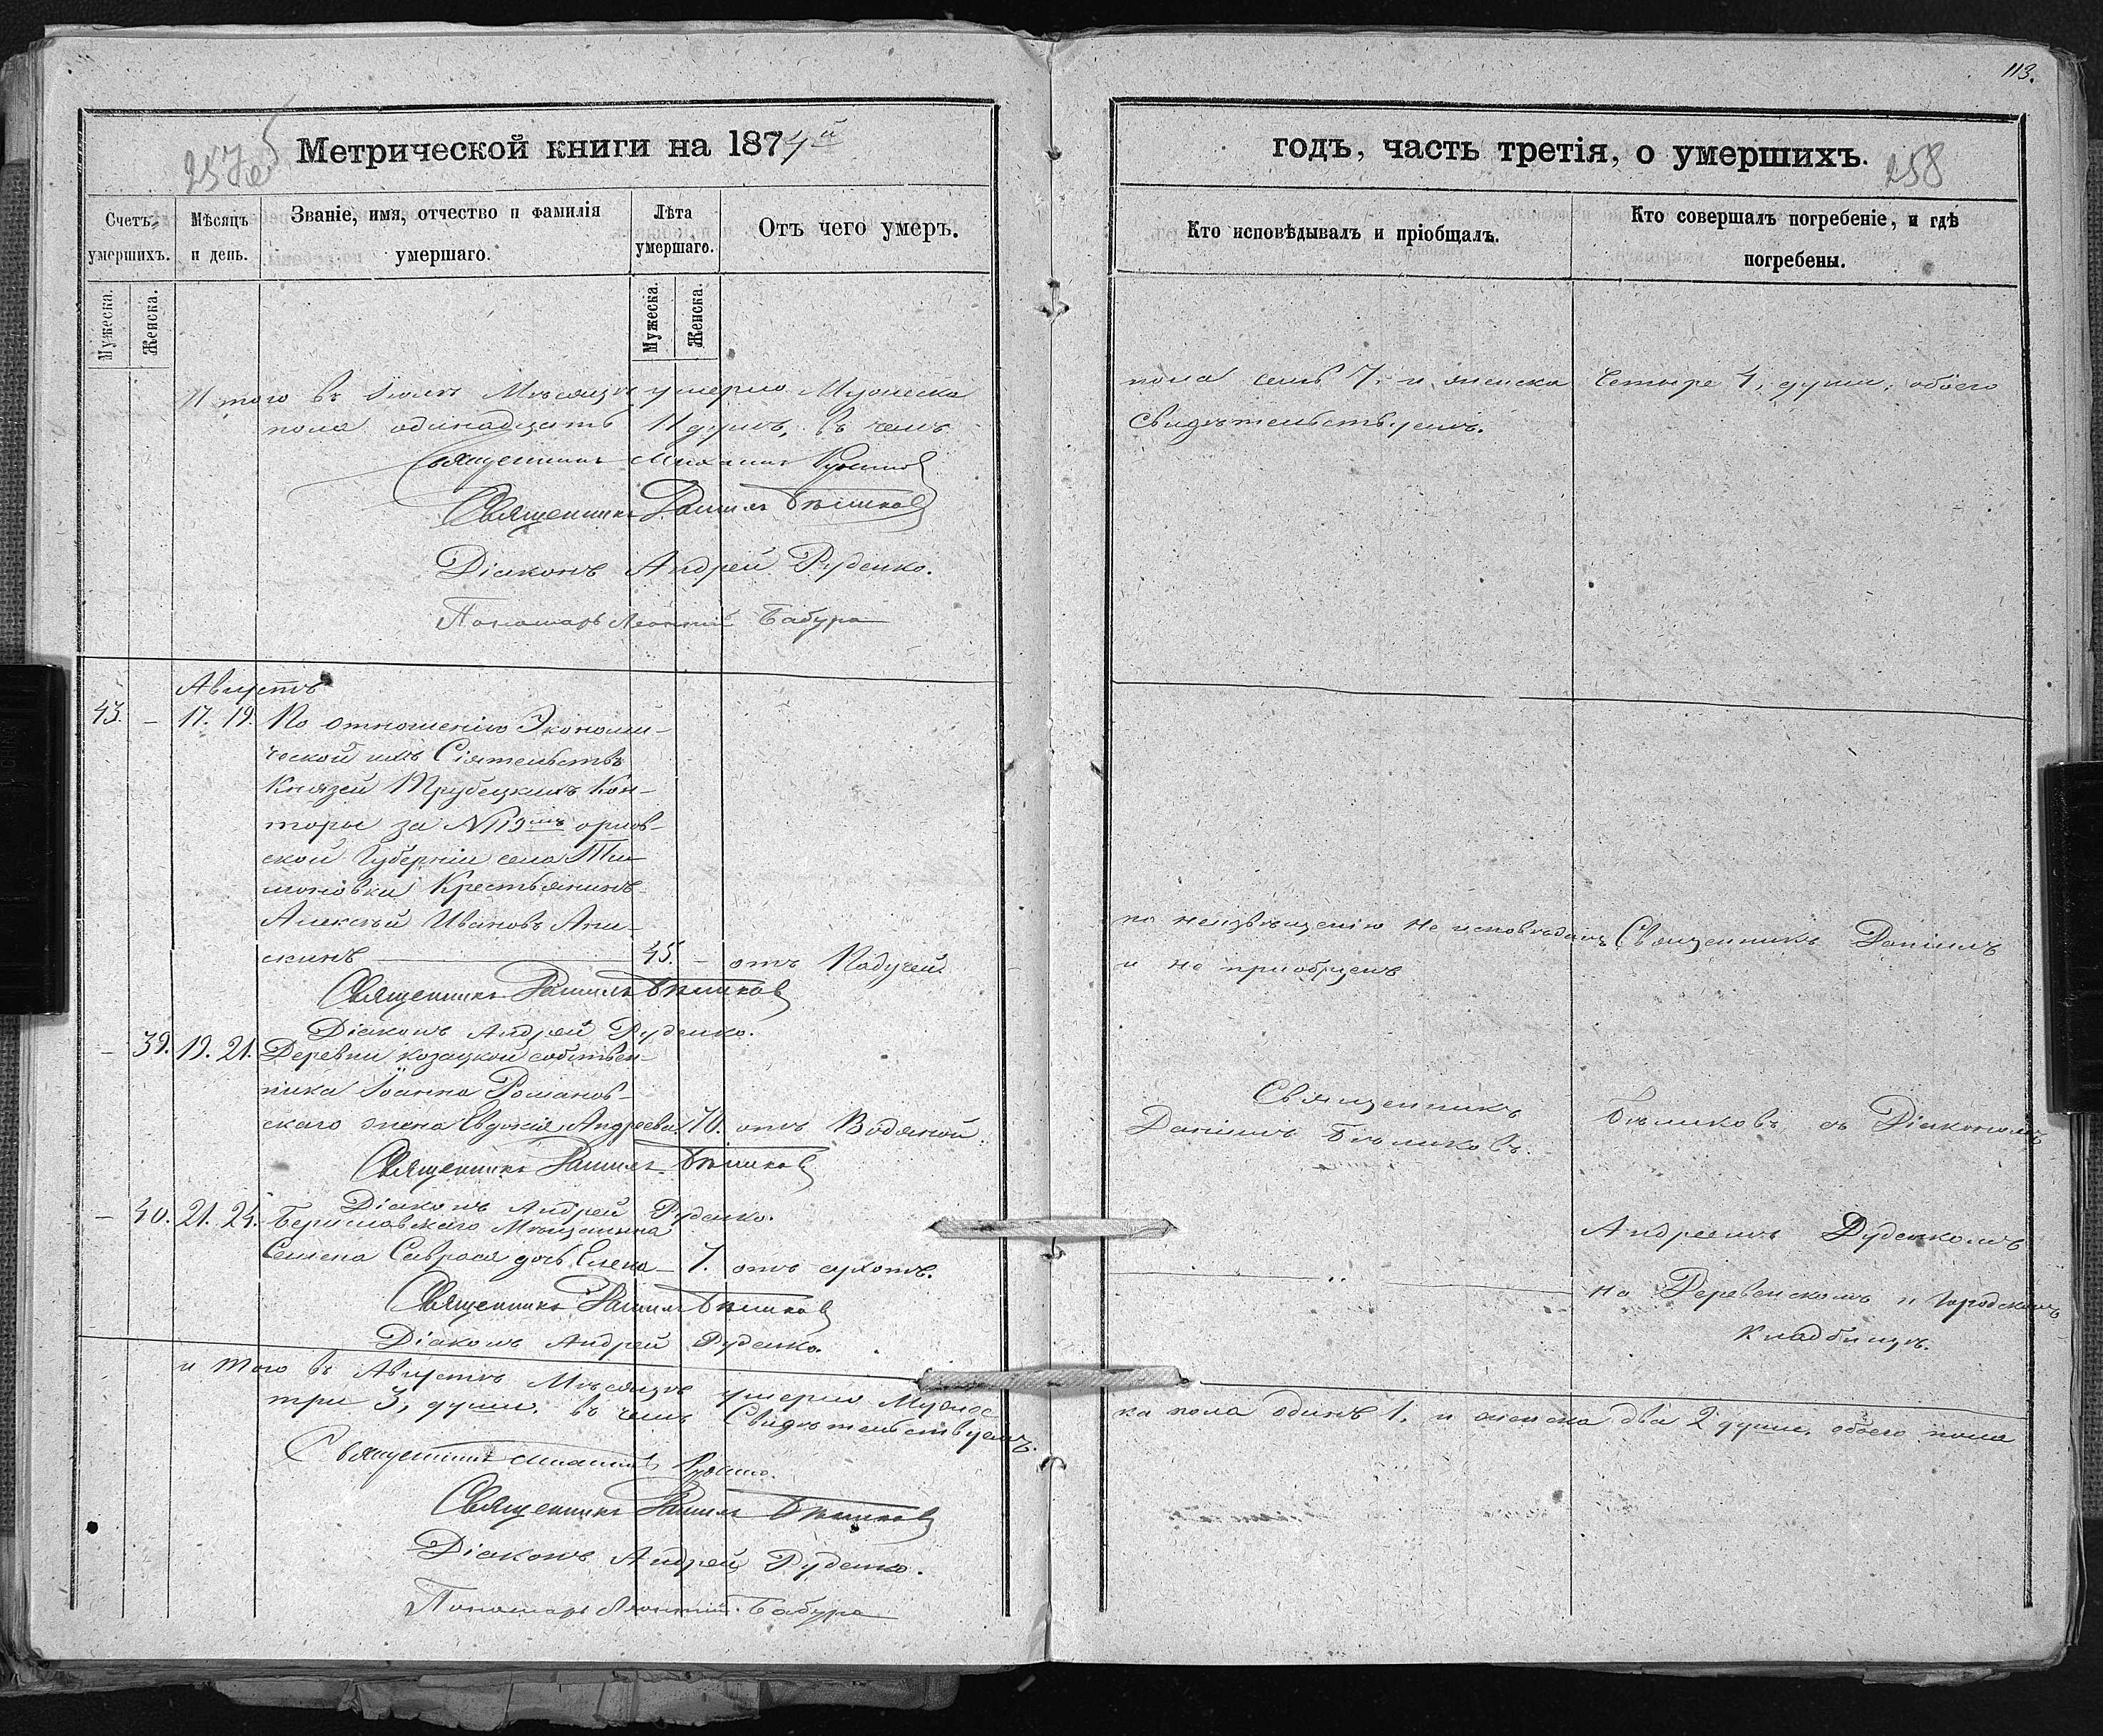 113.
257 об
Метрической книги на 1874й
Счетъ умершихъ.
Мужеска.
Женска.
Мѣсяцъ и день.
Званіе, имя, отчество и фамилія умершаго.
Лѣта умершаго.
Мужеска.
Женска.
Отъ чего умеръ.
И того въ Іюлѣ Мѣсяцѣ умерло Мужеска
пола одинадцать 11 душъ, въ чемъ
Священникъ Михаилъ
Священникъ Даніилъ Бѣликовъ
Діаконъ Андрей Руденко.
Пономарь Леонтій Бабура
Августъ
43. – 17. 19. По отношенію Экономи-
ческой ихъ Сіятельствъ
Князей Трубецкихъ Кон-
торы за № 119мъ орлов-
ской Губерніи села Ти-
моновки Крестьянинъ
Алексѣй Ивановъ Ани-
скинъ 45. – отъ Падучей.
Священникъ Даніилъ Бѣликовъ
Діаконъ Андрей Руденко.
– 39. 19. 21. Деревни козацкой собствен-
ника Іоанна Романов-
скаго жена Евдокія Андреева. 70. отъ Водяной.
Священникъ Даніилъ Бѣликовъ
Діаконъ Андрей Руденко.
– 40. 21. 24. Бериславскаго Мѣщанина
Семена Савраса дочь Елена – 7. отъ сухотъ.
Священникъ Даніилъ Бѣликовъ
Діаконъ Андрей Руденко.
и того въ Августѣ Мѣсяцѣ умерло Мужес
три 3, души. въ чемъ Свидѣтельствуемъ.
Священникъ Михаилъ
Священникъ Даніилъ Бѣликовъ
Діаконъ Андрей Руденко.
Пономарь Леонтій Бабура
годъ, часть третія, о умершихъ.
258
Кто исповѣдывалъ и пріобщалъ.
Кто совершалъ погребеніе, и гдѣ погребены.
пола семь 7. и женска четыре 4, души, обоего
Свидѣтельствуемъ.
по неизвѣщенію не исповѣданъ
и не приобщенъ
Священникъ Даніилъ
Священникъ
Даніилъ Бѣликовъ.
Бѣликовъ съ Діакономъ
Андреемъ Руденкомъ
на Деревенскомъ и Городскомъ
Кладбищѣ.
ка пола одинъ 1. и женска два 2 души, обоего пола